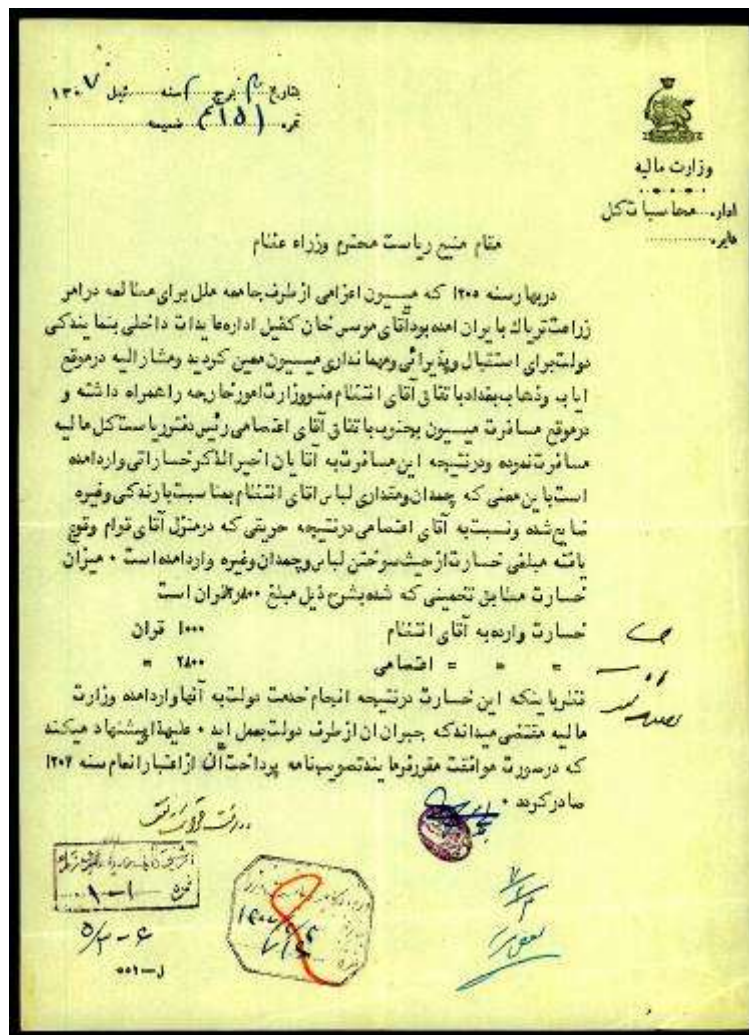 بتاریخ برج سنه ئیل ۱۳۰۷
نمره ضمیمه
وزارت مالیه
اداره محاسبات کل
دایره
مقام منیع ریاست محترم وزراء عظام
دربهار سنه ۱۳۰۵ که میسیون اعزامی از طرف جامعه ملل برای مطالعه در امر
زراعت تریاك با یران امده بود آقای موسی خان کفیل اداره عایدات داخلی بنمایندگی
دولت برای استقبال وپذیرائی ومهمانداری میسیون معین گردید ومشارالیه درموقع
ایاب وذهاب ببغداد باتفاق آقای انتظام عضو وزارت امورخارجه را همراه داشته و
درموقع مسافرت میسیون بجنوب باتفاق آقای اعتصامی رئیس دفتر ریاست کل مالیه
مسافرت نموده ودرنتیجه این مسافرت به آقایان اخیرالذکر خساراتی وارد امده
است باین معنی که چمدان ومقداری لباس اقای انتظام بمناسبت بارندگی وغیره
ضایع شده ونسبت به آقای اعتصامی درنتیجه حریقی که درمنزل آقای قوام وقوع
یافته مبلغی خسارت از حیث سوختن لباس وچمدان وغیره وارد امده است ۰ میزان
خسارت مطابق تخمینی که شده بشرح ذیل مبلغ قران است
خسارت وارده به آقای انتظام ۱۰۰۰ قران
= = = اعتصامی ۲۸۰۰ =
نظر باینکه این خسارت درنتیجه انجام خدمت دولت به آنها وارد امده وزارت
مالیه مقتضی میداند که جبران ان از طرف دولت بعمل اید ۰ علیهذا پیشنهاد میکند
که درصورت موافقت مقرر فرمایند تصویب نامه پرداخت آن از اعتبار انعام سنه ۱۳۰۷
صادر گردد ۰
نمره ۱-۱
۵/۲-۶
ل-۵۵۱